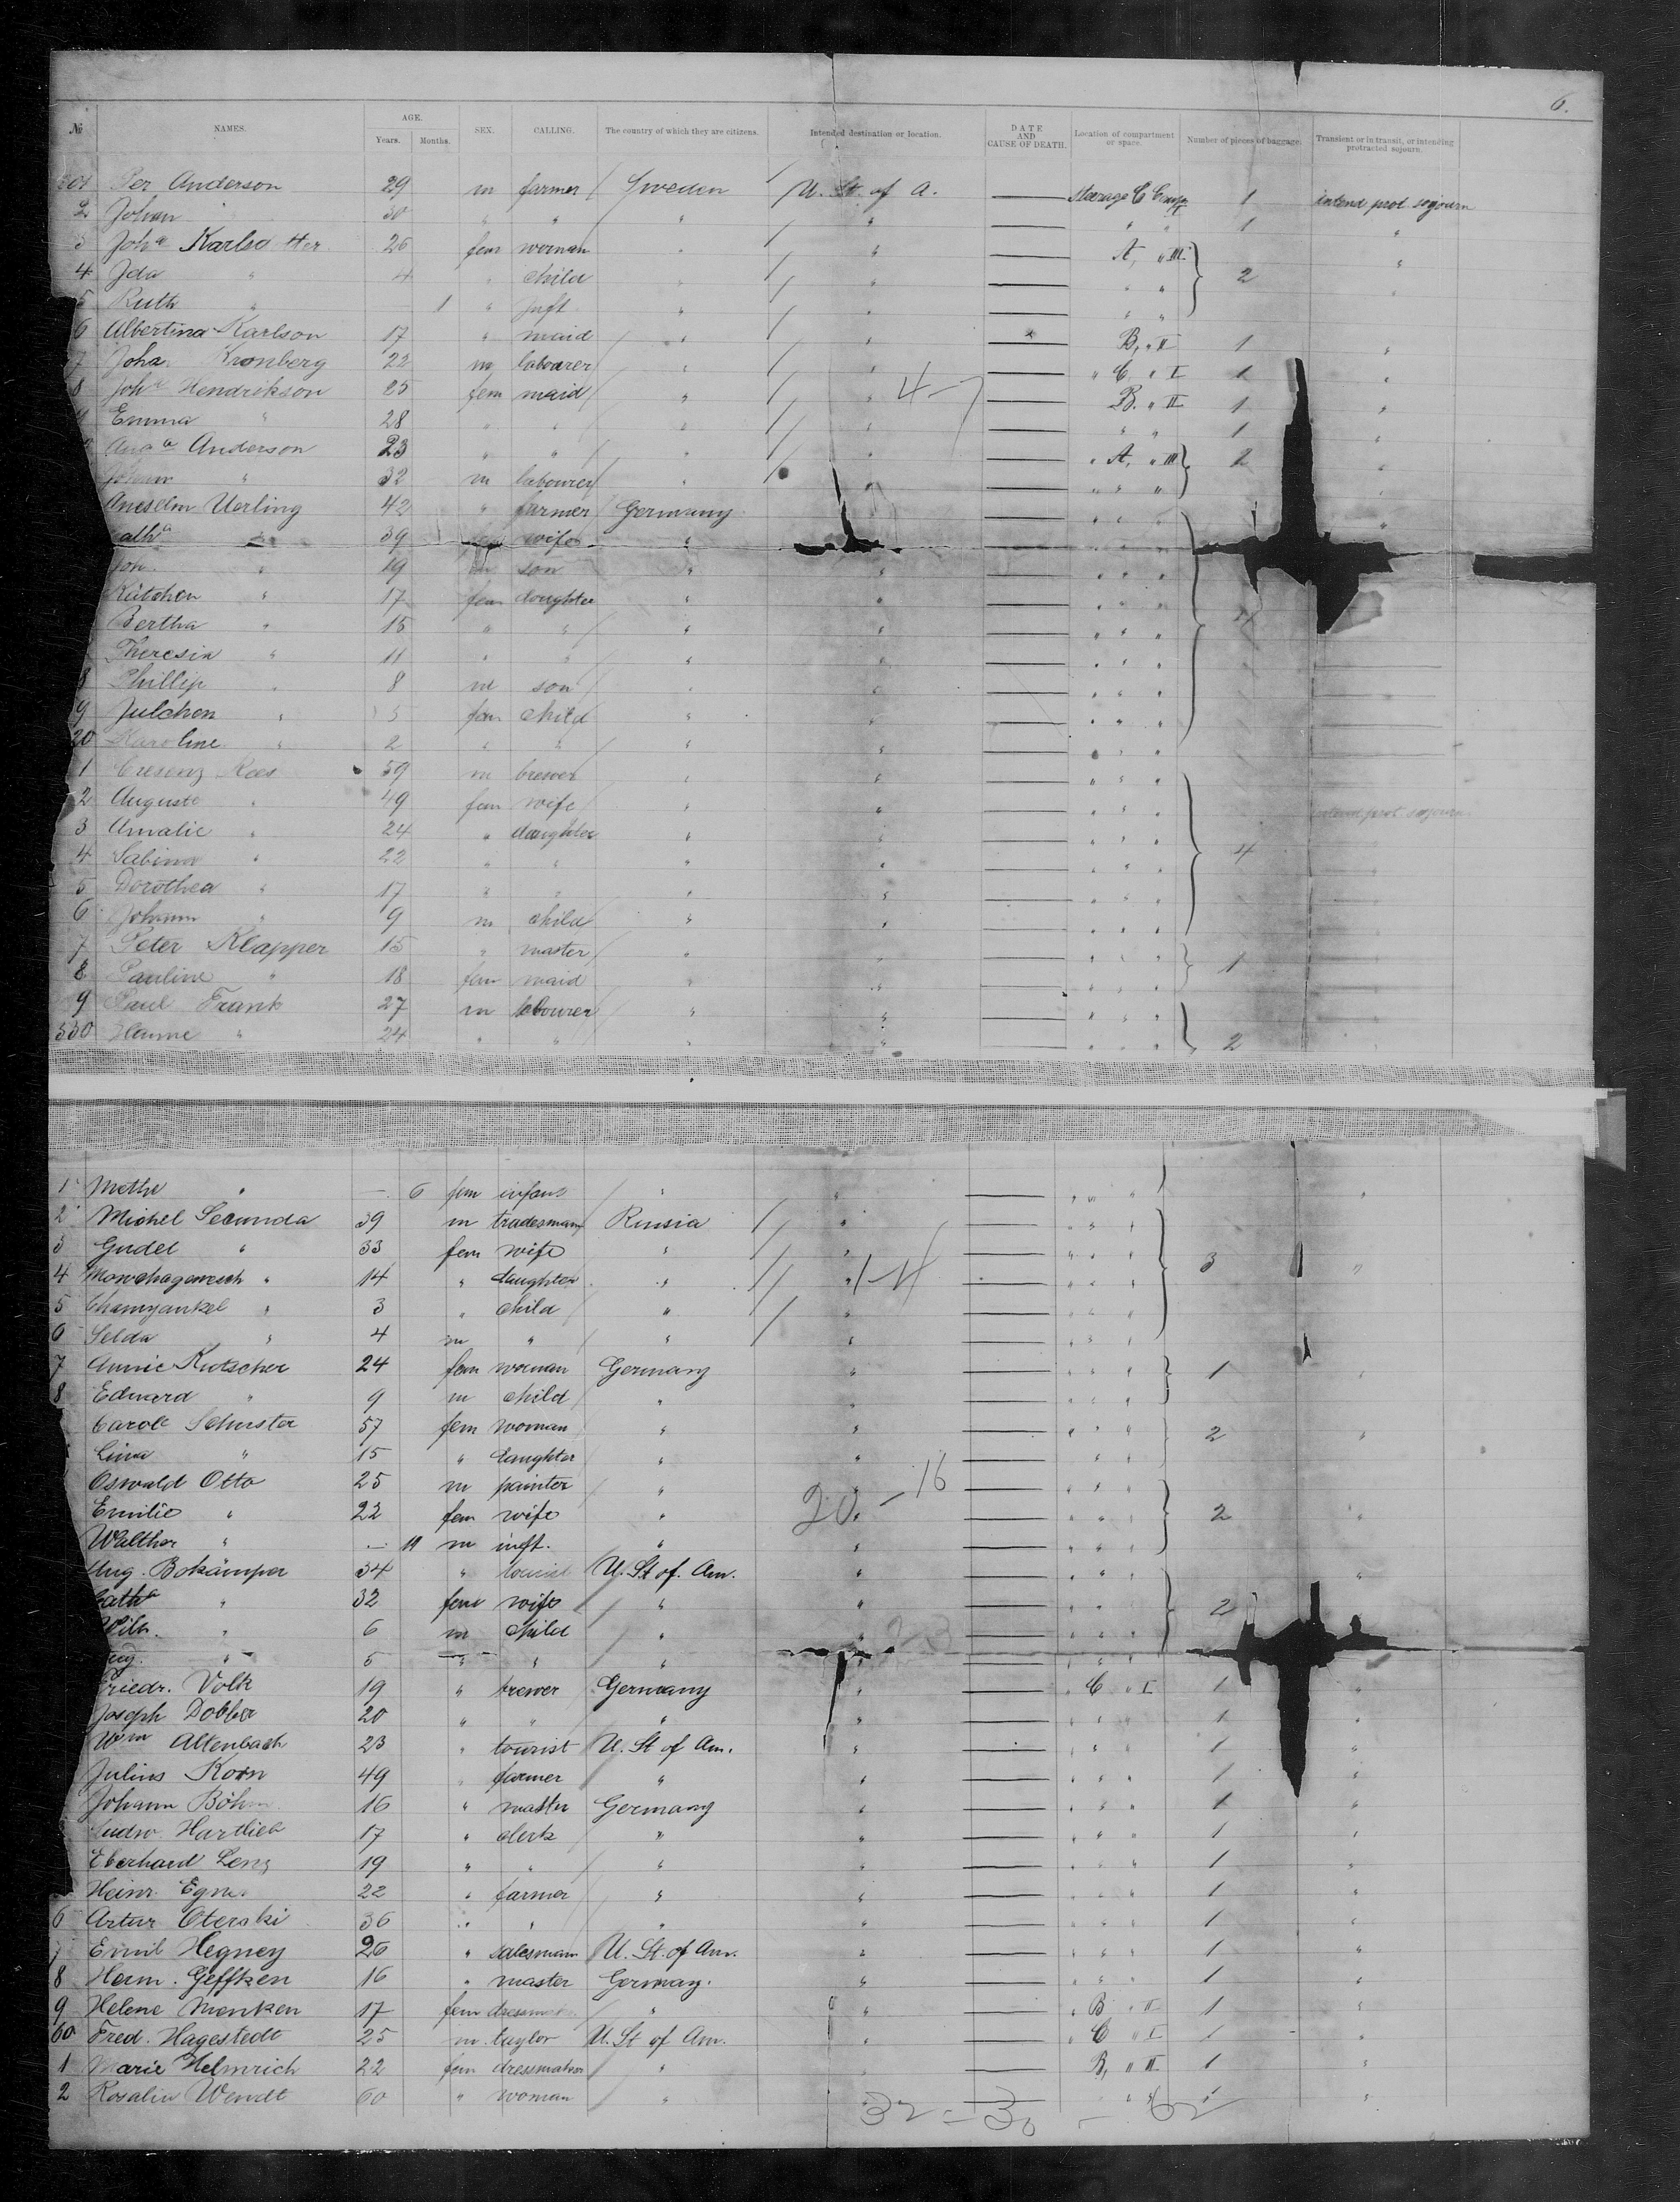 6.
№ NAMES. AGE. Years. Months. SEX. CALLING. The country of which they are citizens. Intended destination or location. DATE AND CAUSE OF DEATH. Location of compartment or space. Number of pieces of baggage. Transient or in transit, or intending protracted sojourn.
301 Per Anderson 29 m farmer Sweden U. St. of A. Steerage C Comp II 1 intend prot sojourn
2 Johan " 30 " " " " " " 1 "
3 Joha Karlso 26 fem woman " " A, " III "
4 Ida " 4 " child " " " " 2
5 Ruth " 1 " Inft " " " "
6 Albertina Karlson 17 " maid " " B, " II 1 "
7 Joha Kronberg 22 m labourer " " " C " I 1 "
8 Joha Hendrikson 25 fem maid " " 4-7 B. " II 1 "
Emma " 28 " " " " " " 1 "
Anderson 23 " " " " " A, " III "
Johan " 32 m labourer " " " " "
Uerling 42 " farmer Germany " " " "
Cath a " 39 fem wife " " " " "
Jon. " 19 m son " " " " "
Kätchen " 17 fem daughter " " " " " 4
Bertha " 15 " " " " " " "
Theresia " 11 " " " " " " "
8 Phillip " 8 m son " " " " "
9 Julchen " 5 fem child " " " " "
20 Karoline " 2 " " " " " " "
1 Cresenz Rees 59 m brewer " " " " "
2 Auguste " 49 fem wife " " " " " intend prot. sojourn
3 Amalie " 24 " daughter " " " " "
4 Sabina " 22 " " " " " " " 4
5 Dorothea " 17 " " " " " " "
6 Johann " 9 m child " " " " "
7 Peter Klapper 15 " master " " " " "
8 Pauline " 18 fem maid " " " " " 1
9 Paul Frank 27 m labourer " " " " "
330 Hanne " 24 " " " " " " " 2
1 Methe " — 6 fem infant " " " " " "
2 Michel Secunda 39 m tradesman Russia " " " "
3 Gudel " 33 fem wife " " " " " 3 "
4 " 14 " daughter " " 1-4 " " "
5 Chamyankel " 3 " child " " " " "
6 Selda " 4 m " " " " " "
7 Annie Kutscher 24 fem woman Germany " " " " 1 "
8 Edward " 9 m child " " " " "
Carole Schuster 57 fem woman " " " " " 2 "
Lina " 15 " daughter " " " " "
Oswald Otto 25 m painter " " 16 " " "
Emilie " 22 fem wife " 20 - " " " 2 "
Walther " — 11 m inft. " " " " "
Aug. Bokämper 34 " tourist U. St of. Am. " " " " "
Cath a " 32 fem wife " " " " " 2
Wilh. " 6 m child " " 23 " " "
Aug. " 5 " " " " " "
Friedr. Volk 19 " brewer Germany " " C " I 1 "
Joseph Dobler 20 " " " " " " " 1 "
Wm Altenbach 23 " tourist U. St of Am. " " " " 1 "
Julius Korn 49 " farmer " " " " " 1 "
Johann Böhm 16 " master Germany " " " " 1 "
Ludw Hartlieb 17 " clerk " " " " " 1 "
Eberhard Lenz 19 " " " " " " " 1 "
Heinr. Egner 22 " farmer " " " " " 1 "
6 Artur Oterski 36 " " " " " " " 1 "
7 Emil Hegney 26 " salesman U. St. of Am. " " " " 1 "
8 Herm. Geffken 16 " master Germany. " " " " 1 "
9 Helene Menken 17 fem dressmaker " " " B " II 1 "
60 Fred. Hagestedt 25 m. taylor U. St of Am. " " C " I 1 "
1 Marie Helmrich 22 fem dressmaker " B, " II 1 "
2 Rosalie Wendt 60 " woman " " " 1 "
32 - 30 - 62